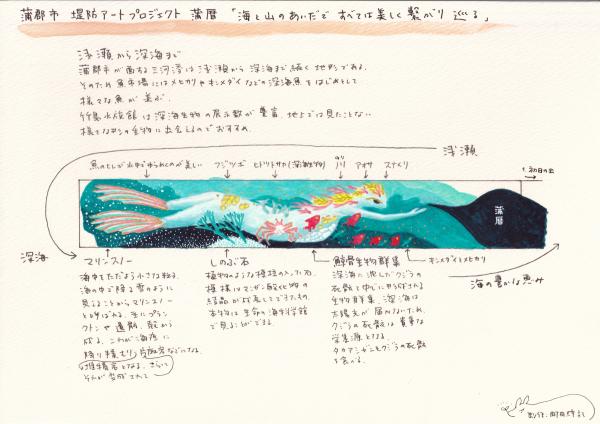 蒲郡市 堤防アートプロジェクト 蒲暦 「海と山のあいだで すべては美しく繋がり 巡る」
浅瀬から深海まで
蒲郡市が面する三河湾は浅瀬から深海まで続く地形である。
そのため魚市場にはメヒカリやキンメダイなどの深海魚をはじめとして
様々な魚が並ぶ。
竹島水族館は深海生物の展示数が豊富。地上では見たことない
様な生物に出会えるのでおすすめ。
浅瀬
魚のヒレが水中でゆらめくのが美しい
フジツボ
ヒトツトサカ(深海生物)
ノリ
アオサ
スナメリ
1.初日の出
蒲暦
深海
マリンスノー
海中をただよう小さな粒子。
海の中で降る雪のように
見えることからマリンスノー
とよばれる。主にプラン
クトンや遺骸、殻から
成る。これが海底に
降り積もり
堆積岩となる。さらに
それが変成されて
しのぶ石
植物のような模様の入った石。
模様はマンガン酸化物の
結晶が成長してできたもの。
本物は生命の海科学館
で見ることができる。
鯨骨生物群集
深海に沈んだクジラの
死骸を中心に形成される
生物群集。深海は
太陽光が届かないため、
クジラの死骸は貴重な
栄養源となる。
タカアシガニもクジラの死骸
を食べる。
キンメダイとメヒカリ
海の豊かな恵み